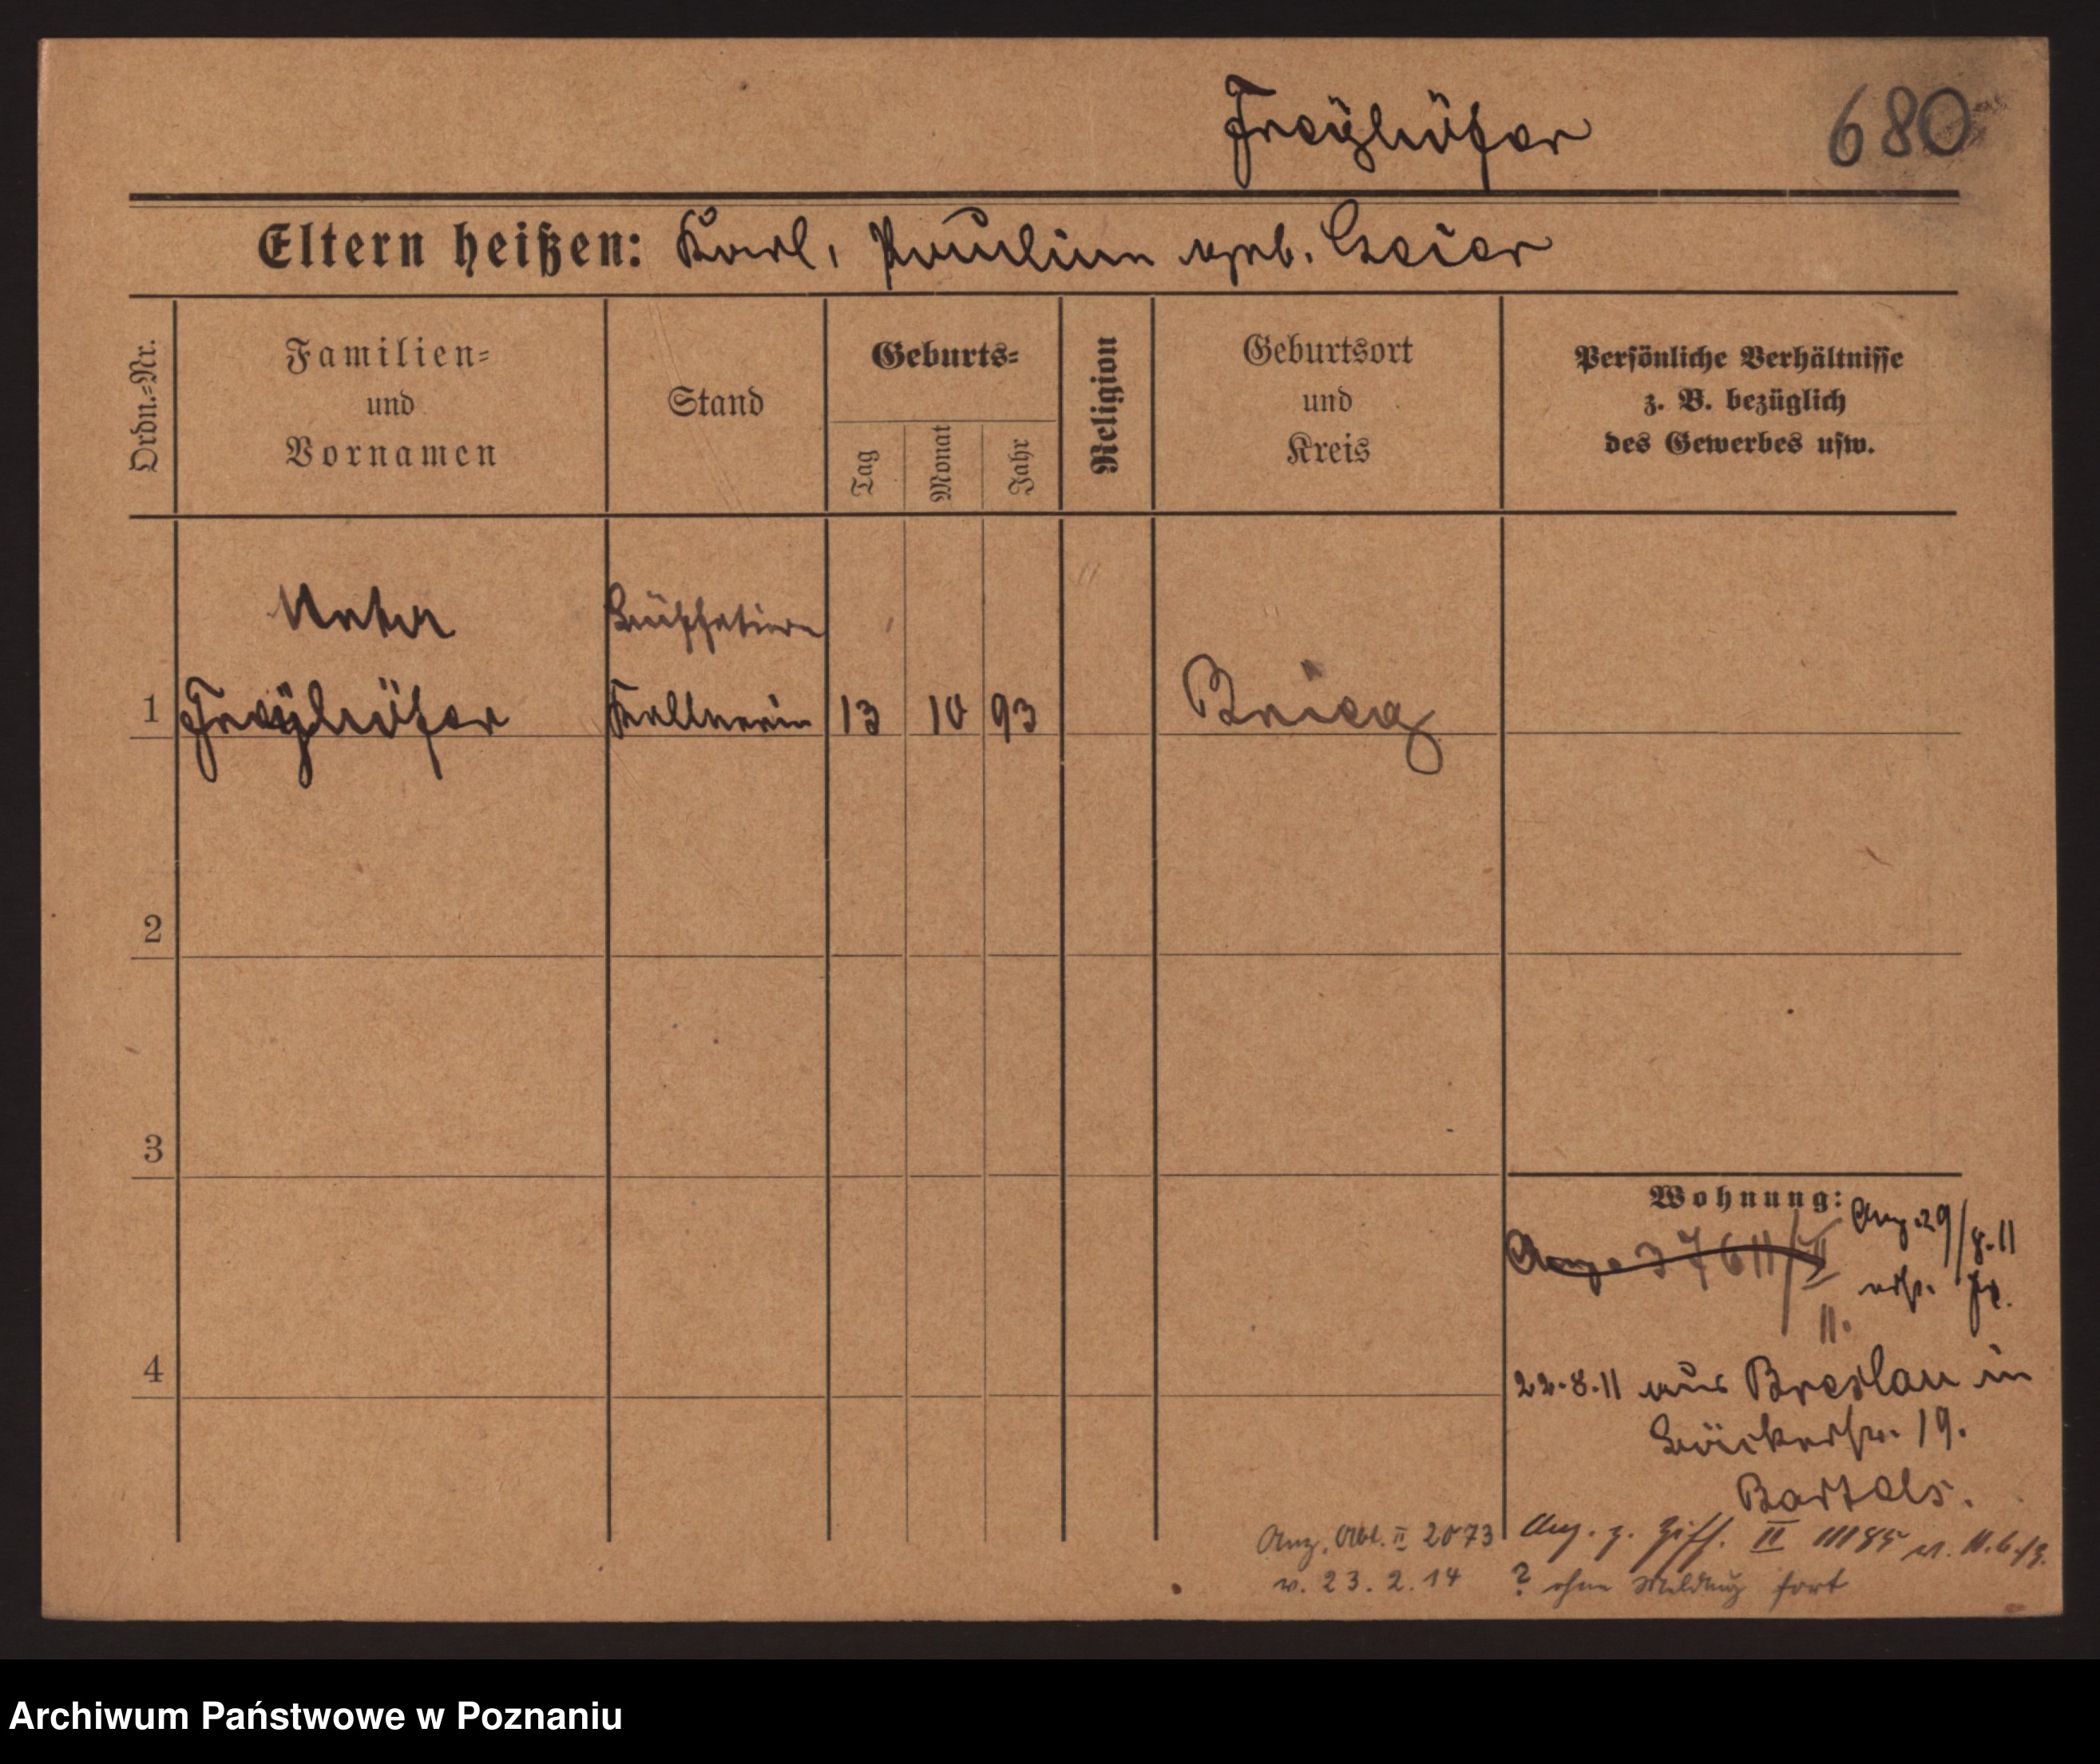 Freyhöfer 680
Eltern heißen: Karl, Pauline geb. Geier
Ordn.=Nr.
Familien=
und
Vornamen
Stand
Geburts=
Tag
Monat
Jahr
Religion
Geburtsort
und
Kreis
Persönliche Verhältnisse
z. B. bezüglich
des Gewerbes usw.
1 Freyhöfer Kellnerin 13 10 93 Brieg
2
3
4
Wohnung: Anz. 29/8.11
Anz. 37611/II
II.
22.8.11 aus Breslau in
Bäckerstr. 19.
Bartels.
Anz. Abt. II 2073
v. 23.2.14
Anz. z. Ziff. II
? ohne Meldung fort
Archiwum Państwowe w Poznaniu